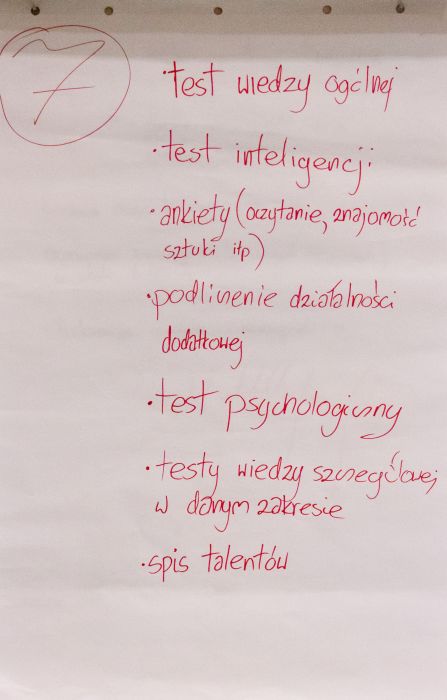 7
• test wiedzy ogólnej
• test inteligencji
• ankiety (oczytanie, znajomość
sztuki itp)
• podliczenie działalności
dodatkowej
• test psychologiczny
• testy wiedzy szczegółowej
w danym zakresie
• spis talentów